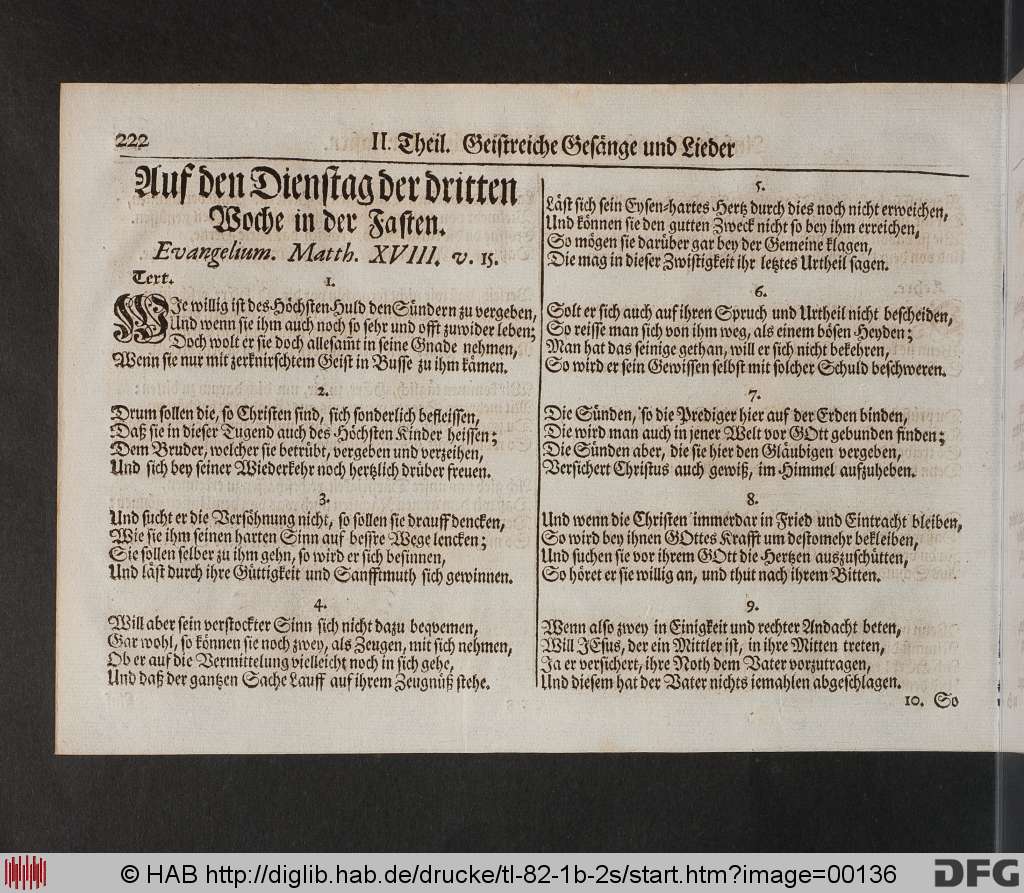 222
II. Theil. Geistreiche Gesänge und Lieder
Auf den Dienstag der dritten
Woche in der Fasten.
Evangelium. Matth. XVIII. v. 15.
Text.
1.
WJe willig ist des Höchsten Huld den Sündern zu vergeben,
Und wenn sie ihm auch noch so sehr und offt zuwider leben;
Doch wolt er sie doch allesamt in seine Gnade nehmen,
Wenn sie nur mit zerknirschtem Geist in Busse zu ihm kämen.
2.
Drum sollen die, so Christen sind, sich sonderlich befleissen,
Daß sie in dieser Tugend auch des Höchsten Kinder heissen;
Dem Bruder, welcher sie betrübt, vergeben und verzeihen,
Und sich bey seiner Wiederkehr noch hertzlich drüber freuen.
3.
Und sucht er die Versöhnung nicht, so sollen sie drauff dencken,
Wie sie ihm seinen harten Sinn auf bessre Wege lencken;
Sie sollen selber zu ihm gehn, so wird er sich besinnen,
Und läst durch ihre Güttigkeit und Sanfftmuth sich gewinnen.
4.
Will aber sein verstockter Sinn sich nicht dazu beqvemen,
Gar wohl, so können sie noch zwey, als Zeugen, mit sich nehmen,
Ob er auf die Vermittelung vielleicht noch in sich gehe,
Und daß der gantzen Sache Lauff auf ihrem Zeugnüß stehe.
5.
Läst sich sein Eysen-hartes Hertz durch dies noch nicht erweichen,
Und können sie den gutten Zweck nicht so bey ihm erreichen,
So mögen sie darüber gar bey der Gemeine klagen,
Die mag in dieser Zwistigkeit ihr letztes Urtheil sagen.
6.
Solt er sich auch auf ihren Spruch und Urtheil nicht bescheiden,
So reisse man sich von ihm weg, als einem bösen Heyden;
Man hat das seinige gethan, will er sich nicht bekehren,
So wird er sein Gewissen selbst mit solcher Schuld beschweren.
7.
Die Sünden, so die Prediger hier auf der Erden binden,
Die wird man auch in jener Welt vor GOtt gebunden finden;
Die Sünden aber, die sie hier den Gläubigen vergeben,
Versichert Christus auch gewiß, im Himmel aufzuheben.
8.
Und wenn die Christen immerdar in Fried und Eintracht bleiben,
So wird bey ihnen GOttes Krafft um destomehr bekleiben,
Und suchen sie vor ihrem GOtt die Hertzen auszuschütten,
So höret er sie willig an, und thut nach ihrem Bitten.
9.
Wenn also zwey in Einigkeit und rechter Andacht beten,
Will JEsus, der ein Mittler ist, in ihre Mitten treten,
Ja er versichert, ihre Noth dem Vater vorzutragen,
Und diesem hat der Vater nichts iemahlen abgeschlagen.
10. So
© HAB http://diglib.hab.de/drucke/tl-82-1b-2s/start.htm?image=00136
DFG